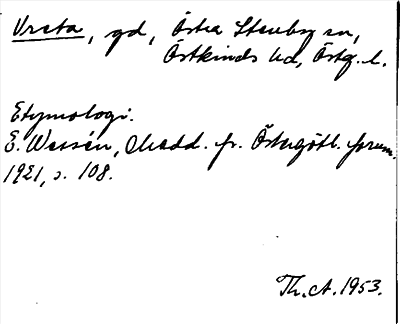 Vreta, gd, Östra Stenby sn,
Östkinds hd, Östg. l.
Etymologi.
E. Wessén, Medd. fr. Östergötl. fornm.
1921, s. 108.
Th. A. 1953.